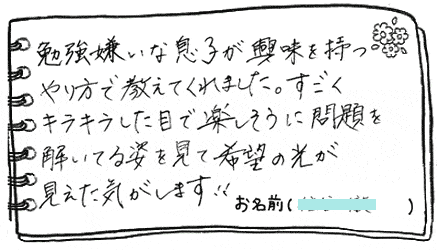 勉強嫌いな息子が興味を持つ
やり方で教えてくれました。すごく
キラキラした目で楽しそうに問題を
解いてる姿を見て希望の光が
見えた気がします!!
お名前( )